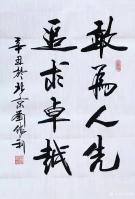 敢为人先
追求卓越
辛丑于北京